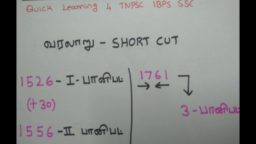 Quick Learning 4 TNPSC IBPS SSC
வரலாறு - SHORT CUT
1526 - I - பானிபட்
1761
(+30)
3 - பானிபட்
1556 - II பானிபட்